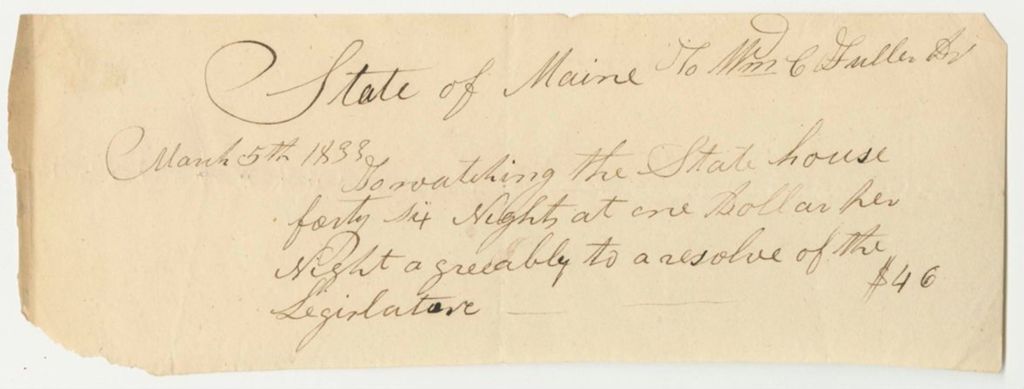 State of Maine To Wm C Fuller Dr
March 5th 1833
To watching the State house
forty six Nights at one Dollar per
Night agreeably to a resolve of the
Legislature
$46